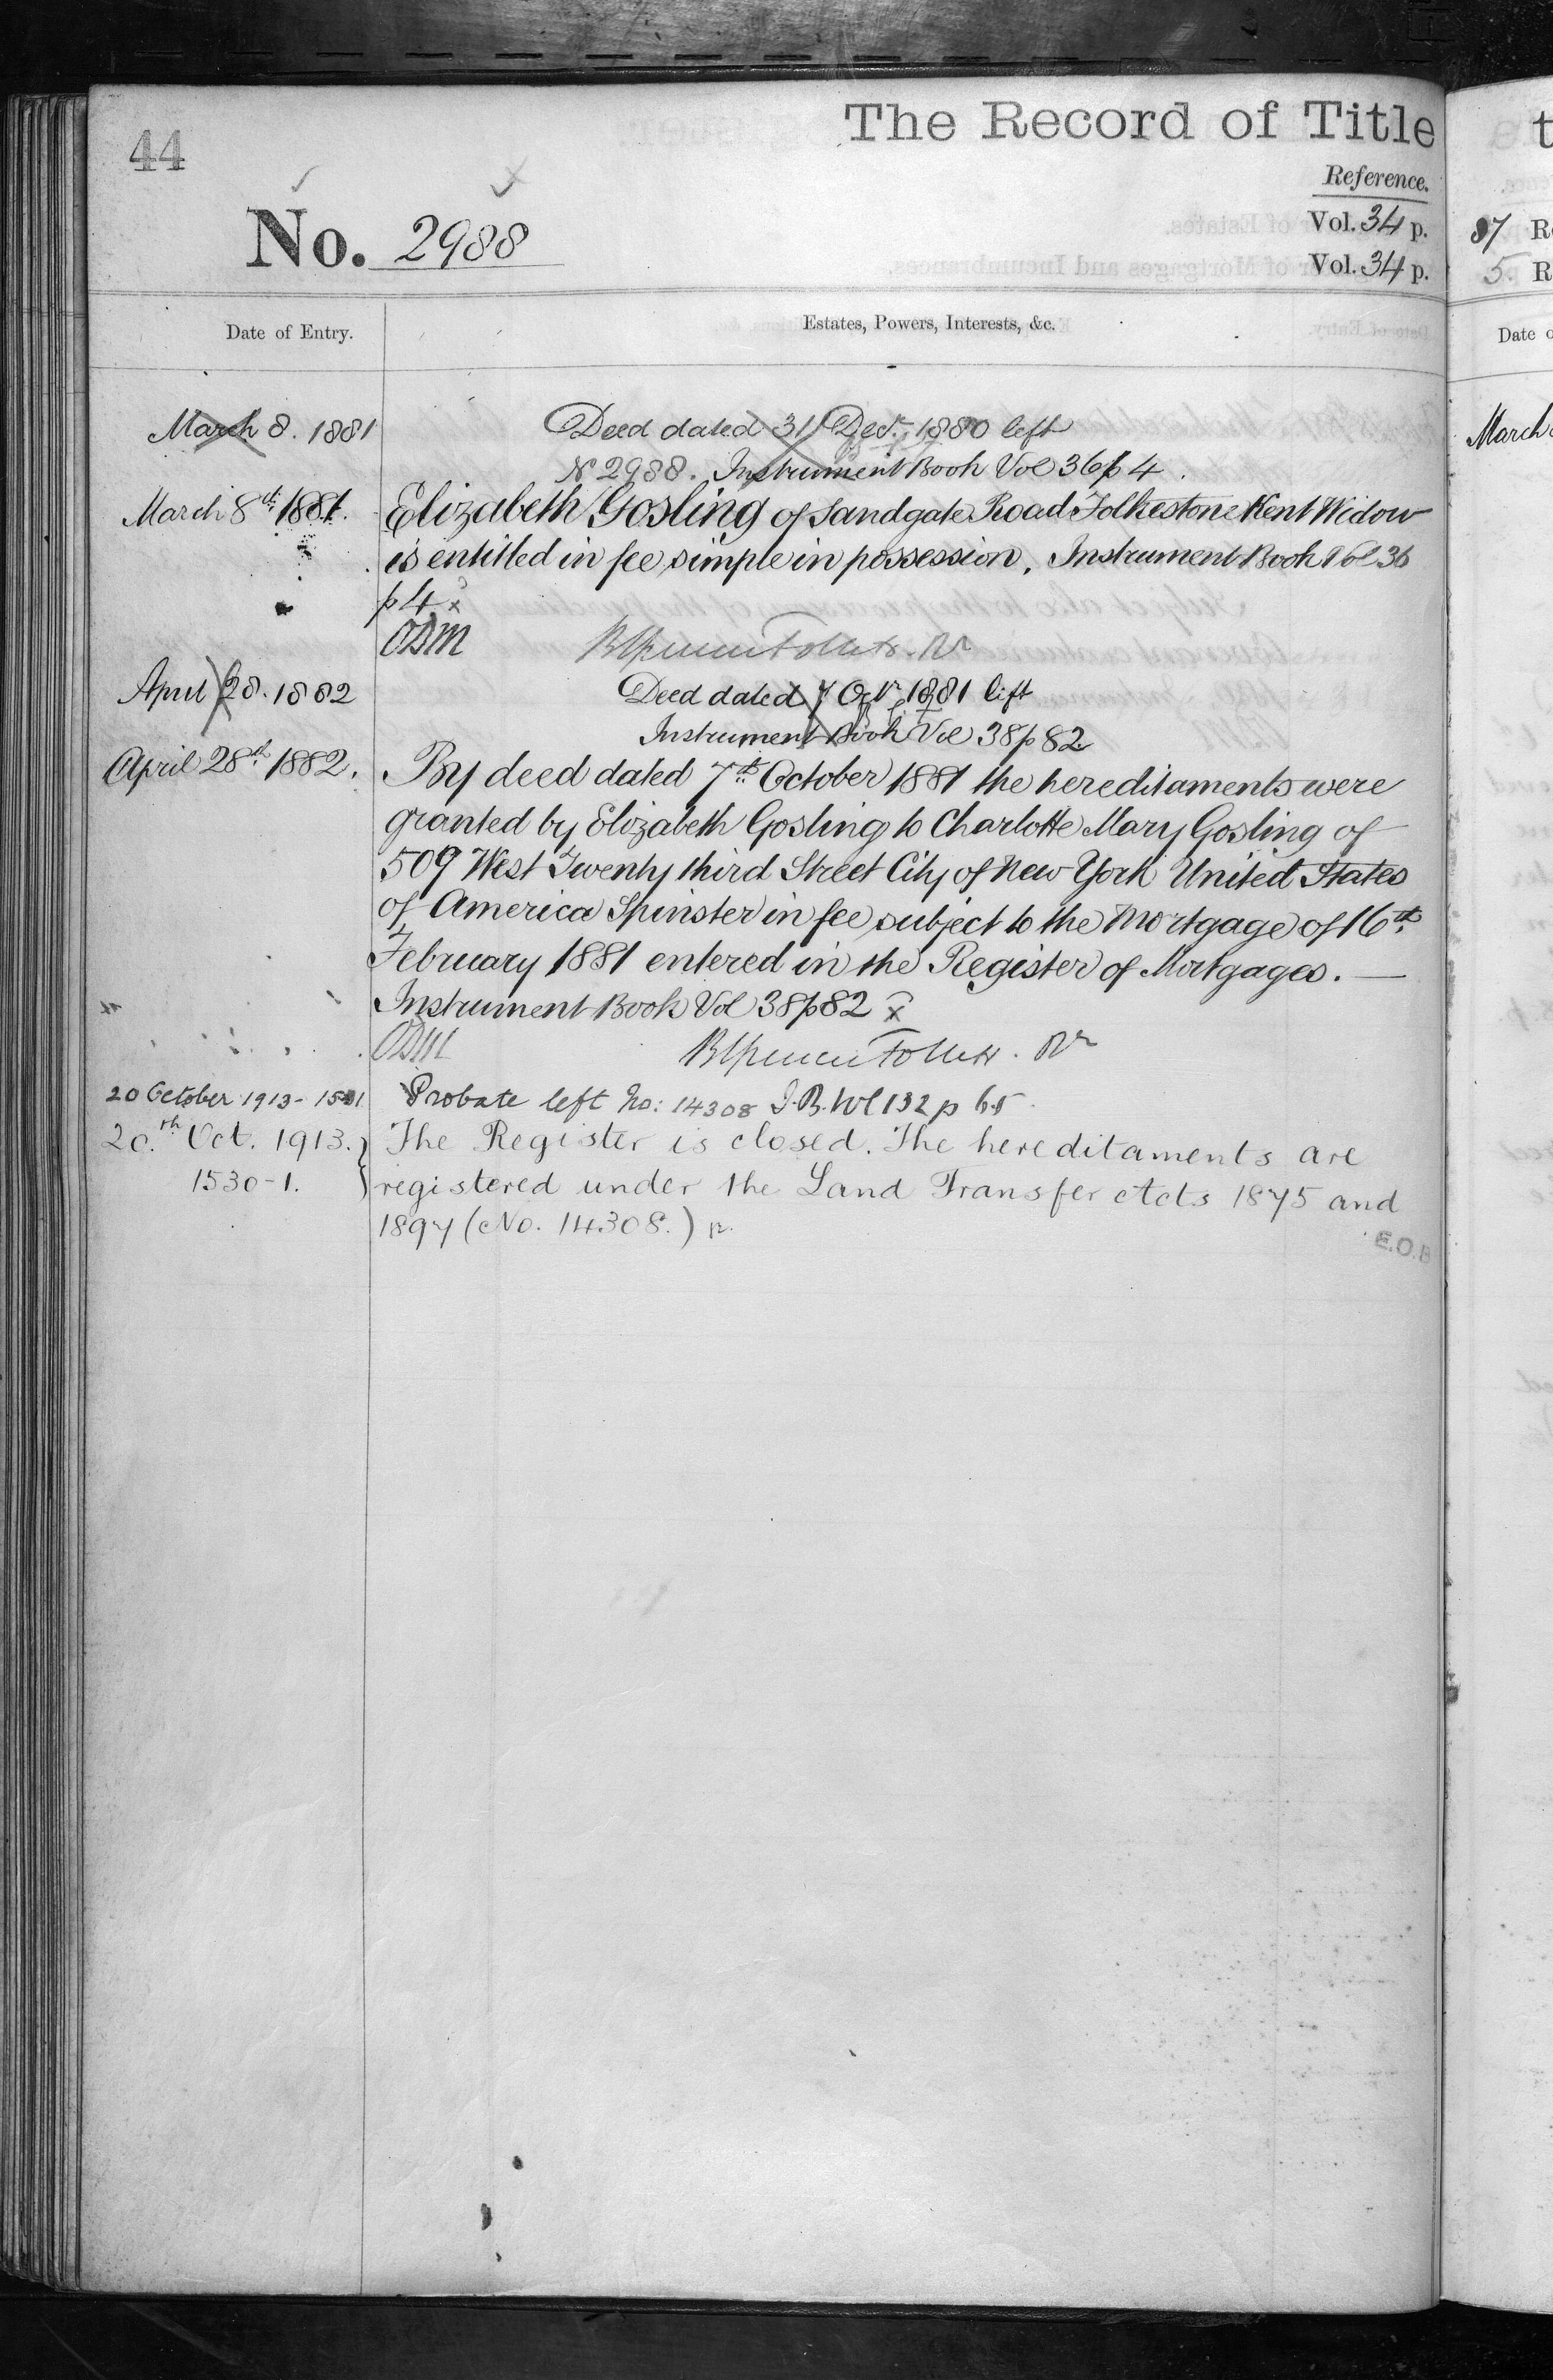 44
The Record of Title
Reference.
No. 2988
Vol. 34 p. 87 R
Vol. 34 p. 5 R
Date of Entry.
Estates, Powers, Interests, &c.
Date
March 8. 1881 Deed dated 31 Decr. 1880 left
No 2988. Instrument Book Vol 36 p 4
March 8th 1881. Elizabeth Gosling of Sandgate Road Folkestone Kent Widow
is entitled in fee simple in possession. Instrument Book Vol 36
p 4 x
ODM
April 28. 1882 Deed dated 7 Octr 1881 left
Instrument Book Vol 38 p 82
April 28th 1882. By deed dated 7th October 1881 the hereditaments were
granted by Elizabeth Gosling to Charlotte Mary Gosling of
509 West Twenty third Street City of New York United States
of America Spinster in fee subject to the Mortgage of 16th
February 1881 entered in the Register of Mortgages. —
Instrument Book Vol 38 p 82 x
ODM
20 October 1913 - Probate left No: 14308 I.B. Vol 132 p 65
20th Oct. 1913. } The Register is closed. The hereditaments are
1530-1. } registered under the Land Transfer Acts 1875 and
1897 (No. 14308.)
E.O.B
March